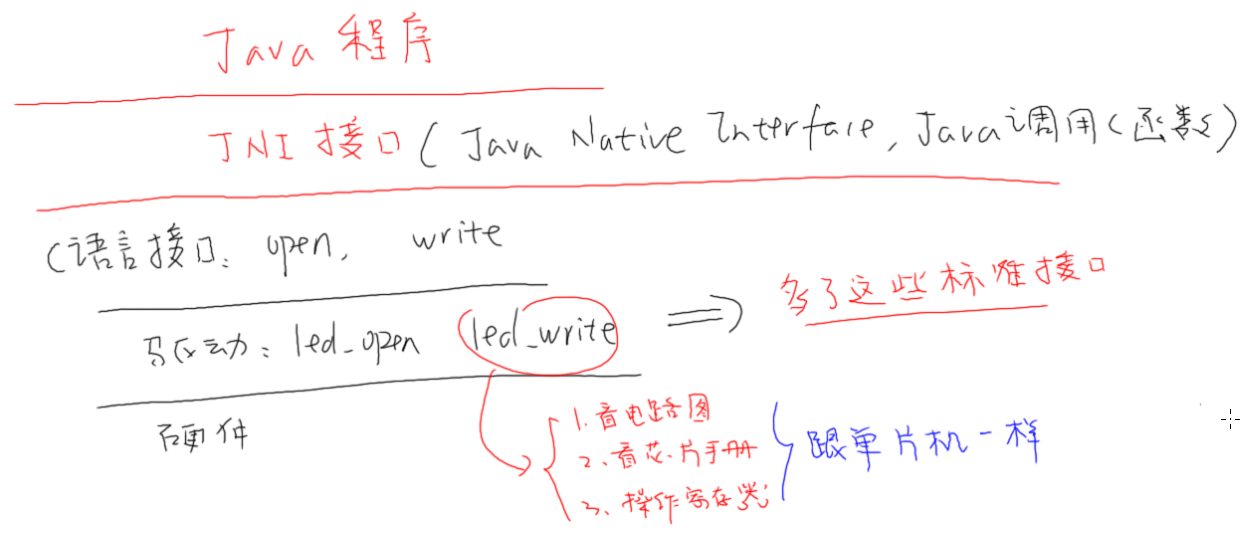 Java 程序
JNI 接口 ( Java Native Interface, Java调用C函数)
C语言接口: open, write
驱动: led_open led_write => 多了这些标准接口
硬件
1. 看电路图
2、看芯片手册
3、操作寄存器
跟单片机一样